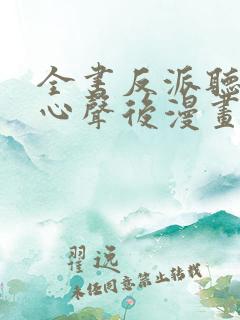 全書反派聽
心聲後漫畫
翟远
未经同意禁止转载